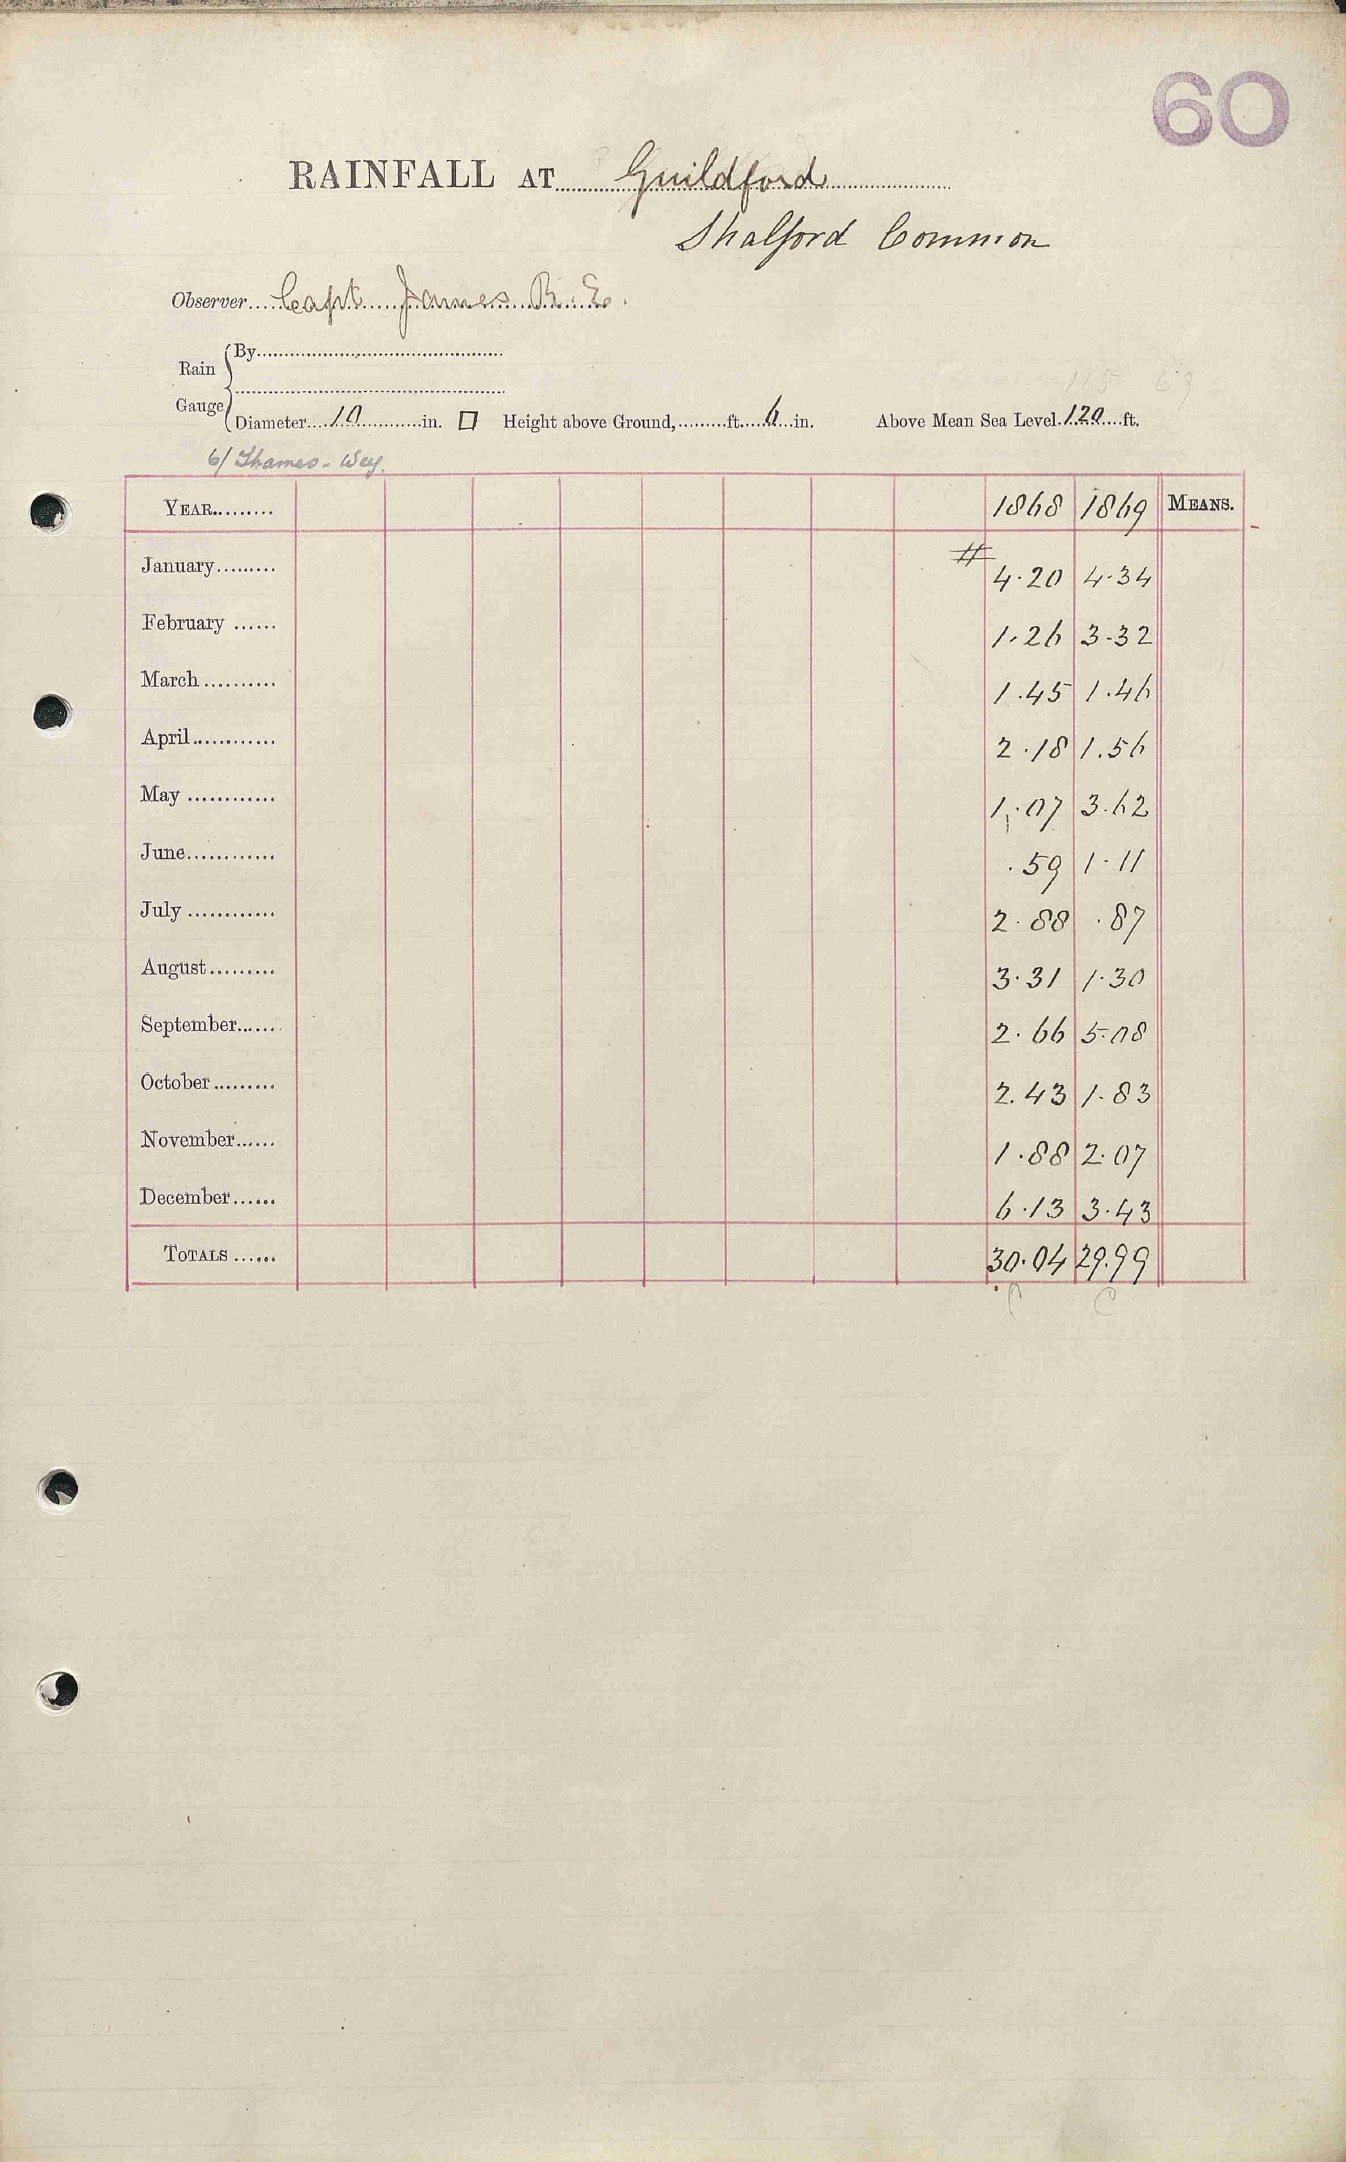 60
RAINFALL AT Guildford
Shalford Common
Observer Capt James R.E.
Rain Gauge
By
Diameter 10 in. □ Height above Ground, ft. 6 in. Above Mean Sea Level 120 ft.
6/ Thames - Wey.
YEAR 1868 1869 MEANS.
January # 4.20 4.34
February 1.26 3.32
March 1.45 1.46
April 2.18 1.56
May 1.07 3.62
June .59 1.11
July 2.88 .87
August 3.31 1.30
September 2.66 5.08
October 2.43 1.83
November 1.88 2.07
December 6.13 3.43
TOTALS 30.04 29.99
C C